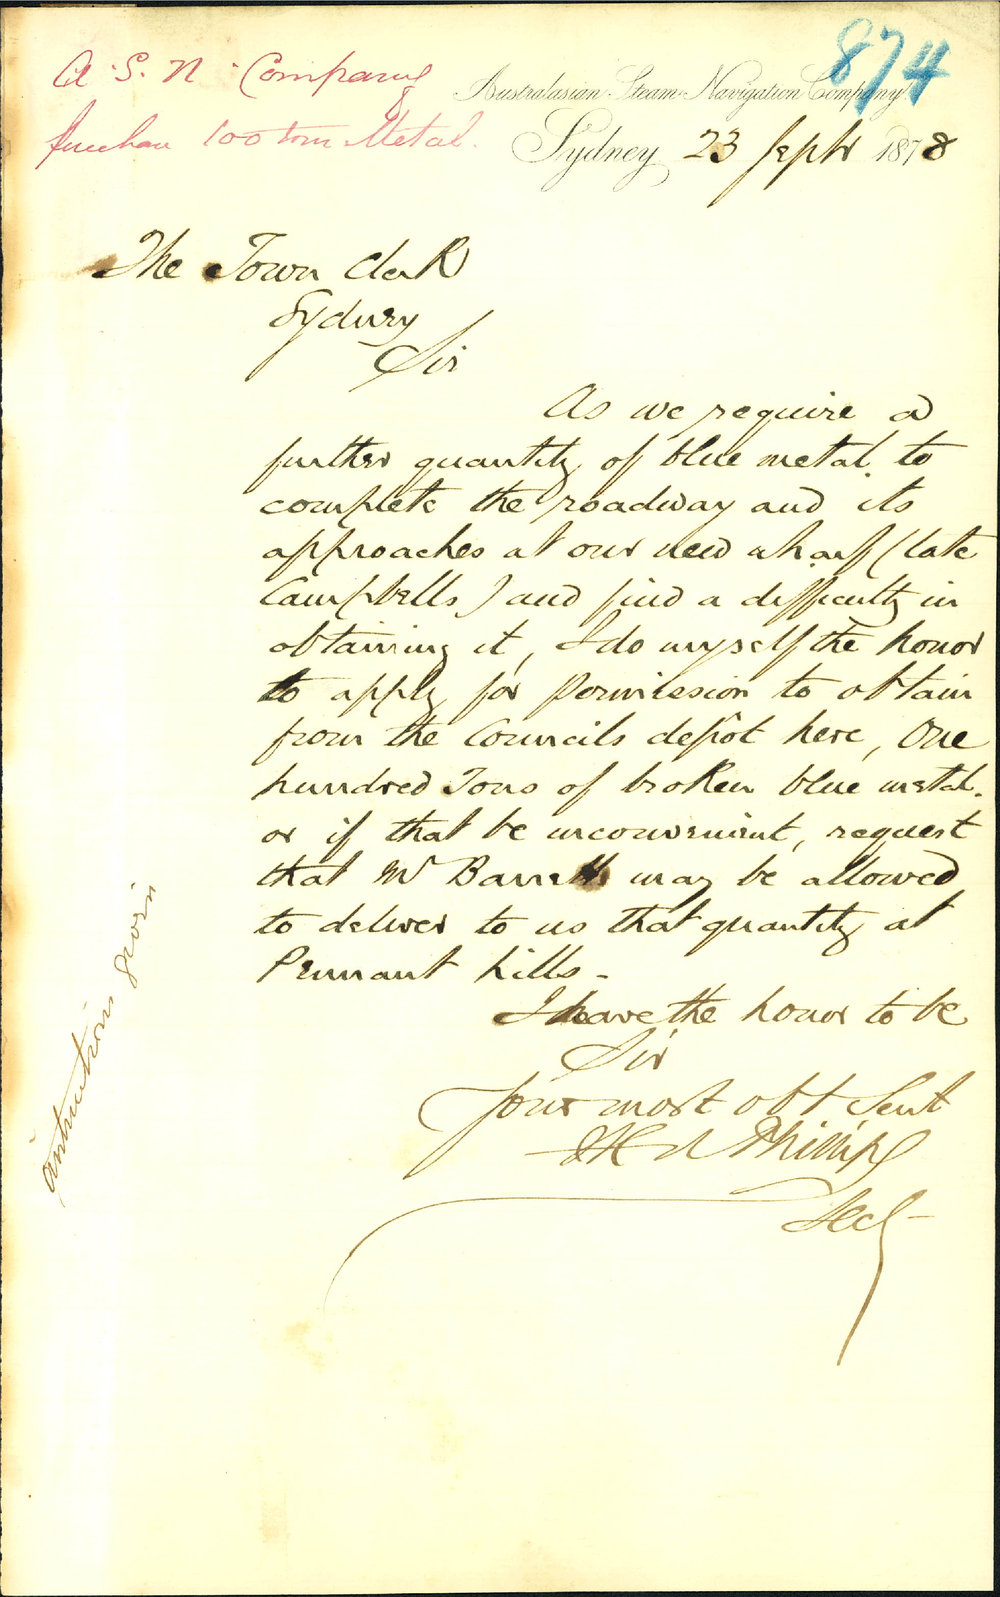 874
A. S. N. Company
purchase 100 tons Metal.
Australasian Steam Navigation Company
Sydney 23 Septr 1878
The Town Clerk
Sydney
Sir
As we require a
further quantity of blue metal to
complete the roadway and its
approaches at our new wharf (late
Campbells) and find a difficulty in
obtaining it, I do myself the honor
to apply for permission to obtain
from the Councils depôt here, One
hundred Tons of broken blue metal.
or if that be inconvenient, request
that Mr Barrett may be allowed
to deliver to us that quantity at
Pennant hills -
I have the honor to be
Sir
Your most obt Servt
Phillips
Secy
instructions given